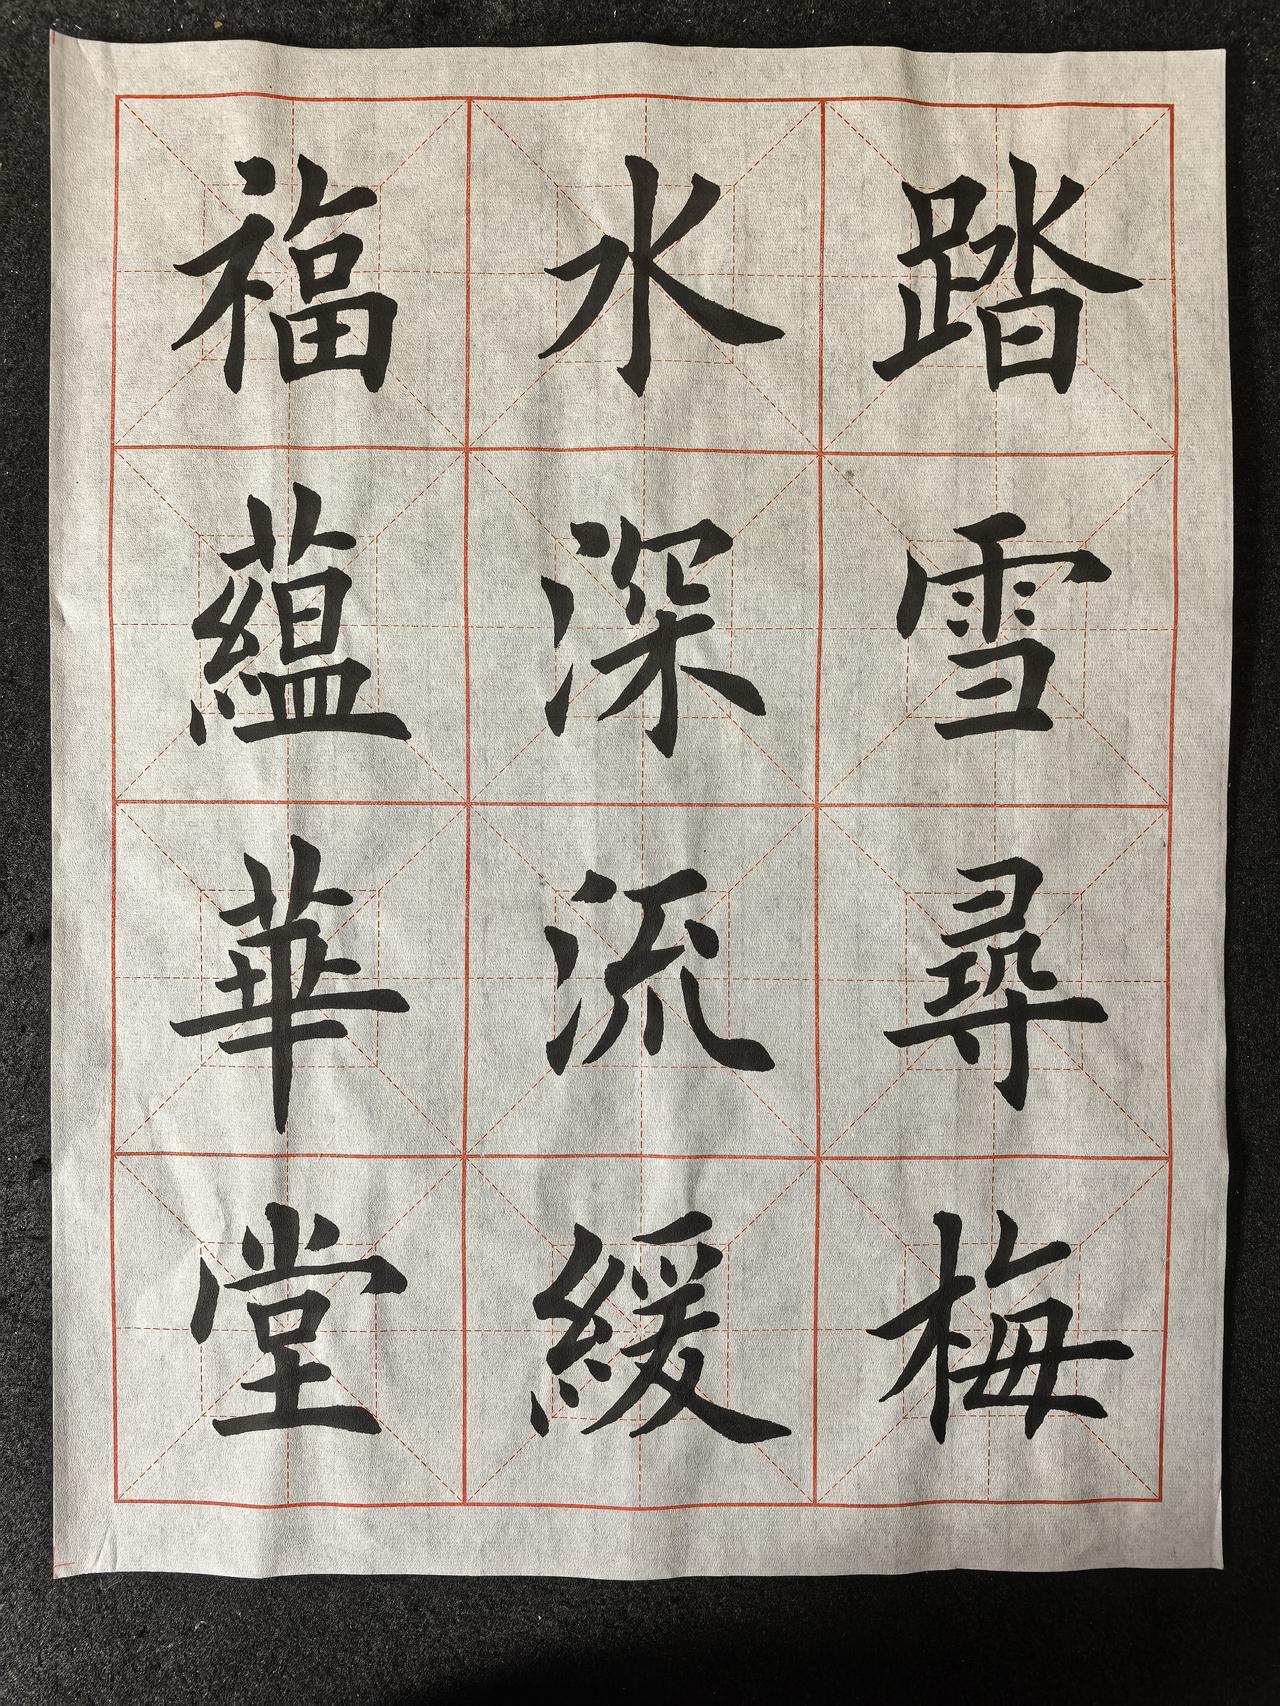 踏雪尋梅
水深流緩
福蘊華堂